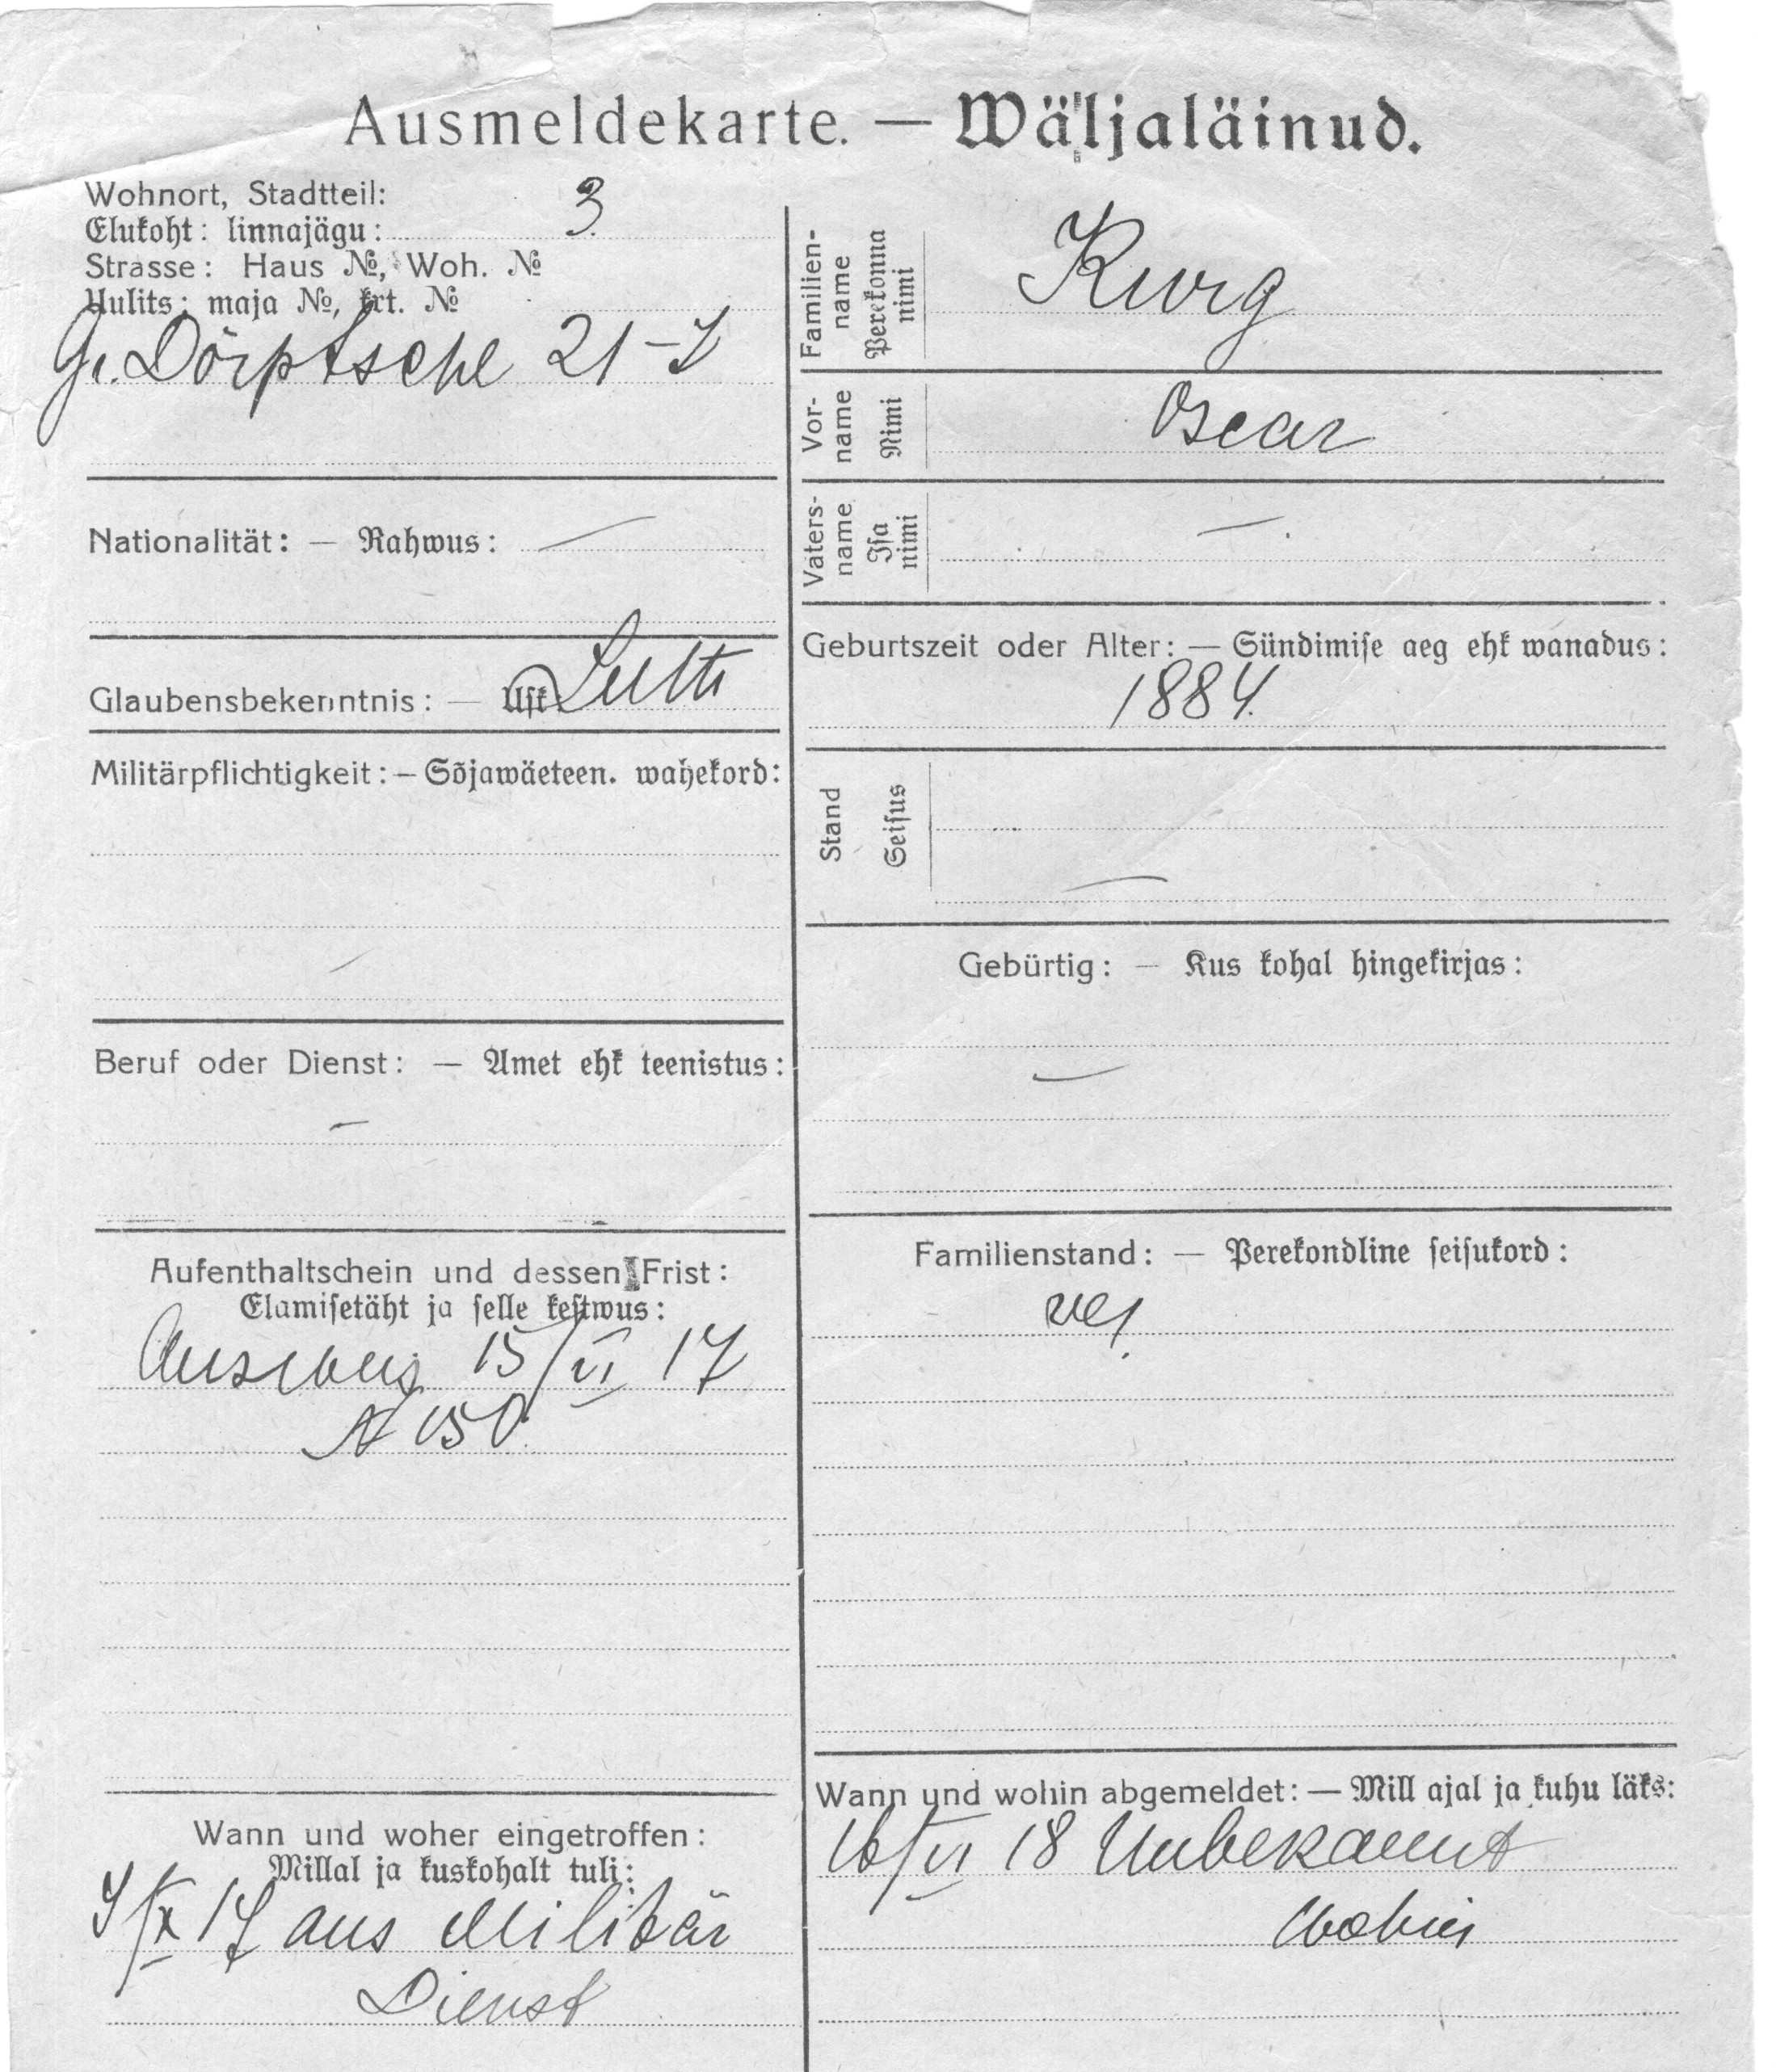 Ausmeldekarte. — Wäljaläinud.
Wohnort, Stadtteil:
Elukoht: linnajägu: 3
Strasse: Haus №, Woh. №
Uulits: maja №, krt. №
Gr. Dörptsche 21-7
Nationalität: — Rahwus: —
Glaubensbekenntnis: — Usk: Luth
Militärpflichtigkeit: — Sõjawäeteen. wahekord:
—
Beruf oder Dienst: — Amet ehk teenistus:
—
Aufenthaltschein und dessen Frist:
Elamisetäht ja selle kestwus:
Ausweis 15/VI 17
№ 150
Wann und woher eingetroffen:
Millal ja kuskohalt tuli:
4/X 17 aus Militär
Dienst
Familien-
name
Perekonna
nimi
Kurg
Vor-
name
Nimi
Oscar
Vaters-
name
Isa
nimi
—
Geburtszeit oder Alter: — Sündimise aeg ehk wanadus:
1884.
Stand
Seisus
—
Gebürtig: — Kus kohal hingekirjas:
—
Familienstand: — Perekondline seisukord:
Wann und wohin abgemeldet: — Mill ajal ja kuhu läks:
16/VI 18 Unbekannt
wohin